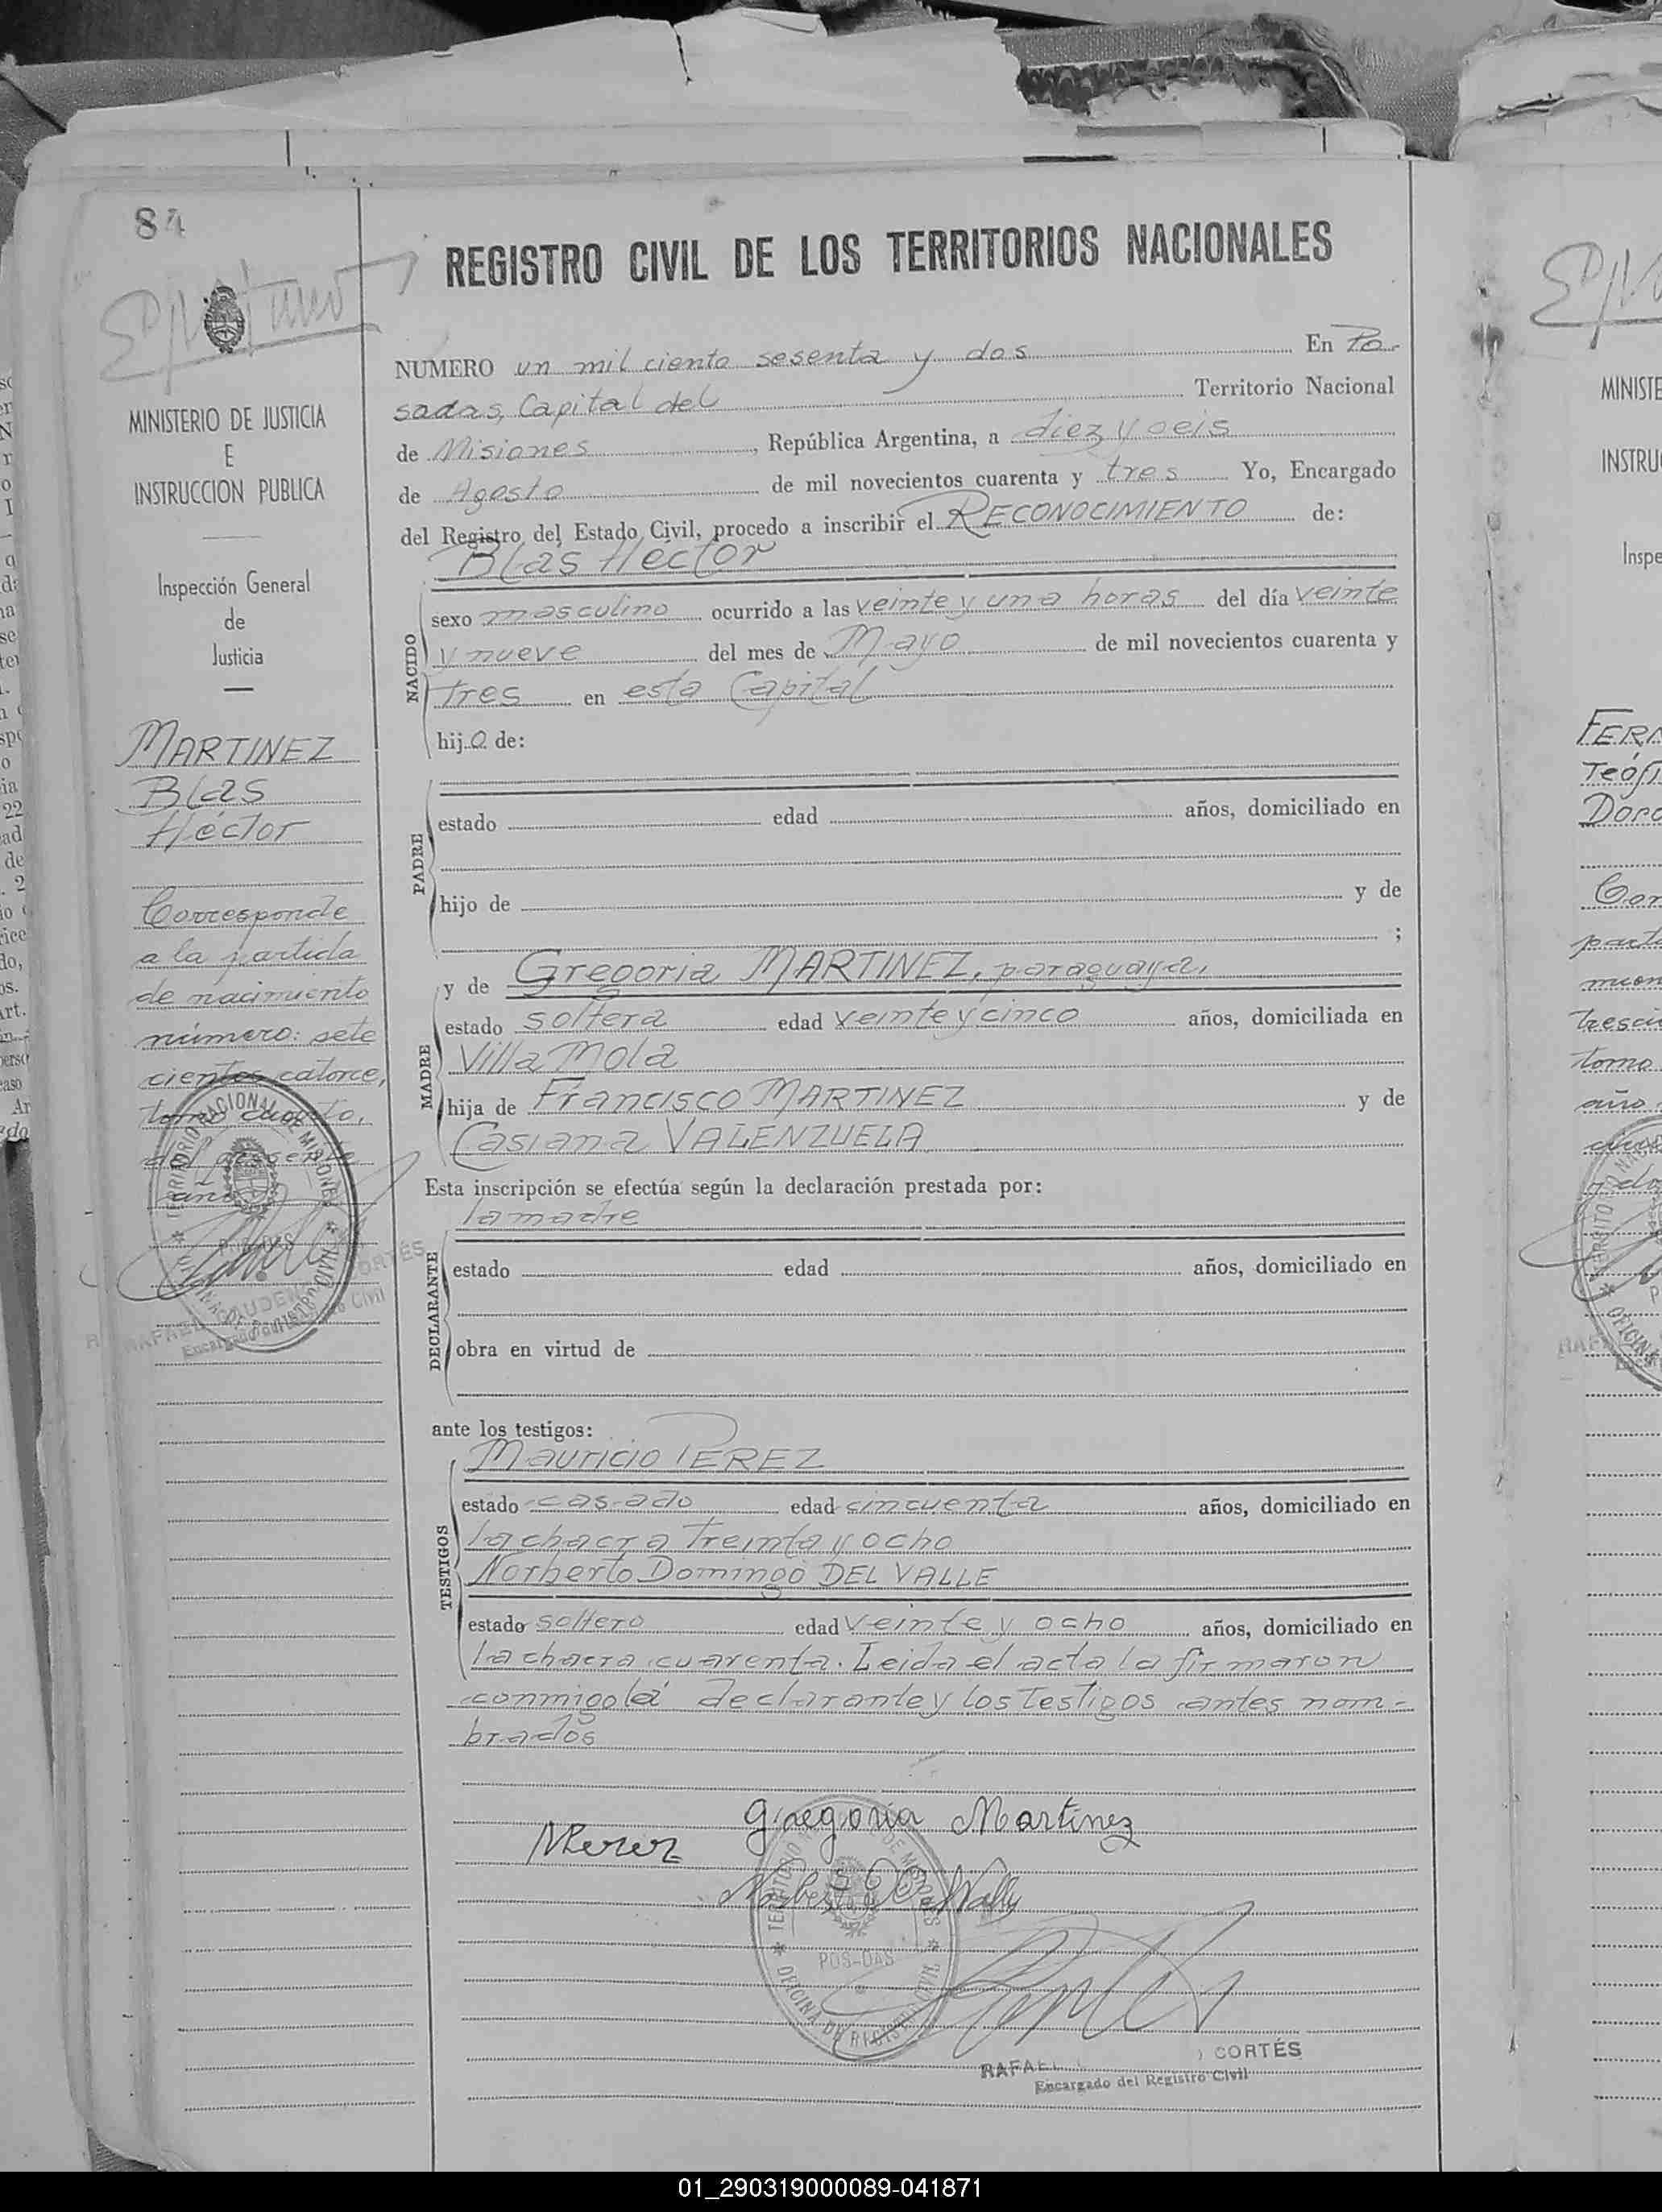 84
REGISTRO CIVIL DE LOS TERRITORIOS NACIONALES
MINISTERIO DE JUSTICIA
E
INSTRUCCION PUBLICA
Inspección General
de
Justicia
MARTINEZ
Blás
Héctor
Corresponde
a la partida
de nacimiento
número: sete
cientos catorce,
tomo cuarto,
del presente
año
NUMERO un mil ciento sesenta y dos En Po-
sadas, Capital del Territorio Nacional
de Misiones, República Argentina, a diez y seis
de Agosto de mil novecientos cuarenta y tres Yo, Encargado
del Registro del Estado Civil, procedo a inscribir el RECONOCIMIENTO de:
Blás Héctor
NACIDO
sexo masculino ocurrido a las veinte y una horas del día veinte
y nueve del mes de Mayo de mil novecientos cuarenta y
tres en esta Capital
hijo de:
PADRE
estado edad años, domiciliado en
hijo de y de
;
y de Gregoria MARTINEZ, paraguaya,
MADRE
estado soltera edad veinte y cinco años, domiciliada en
Villa Mola
hija de Francisco MARTINEZ y de
Casiana VALENZUELA
Esta inscripción se efectúa según la declaración prestada por:
la madre
DECLARANTE
estado edad años, domiciliado en
obra en virtud de
ante los testigos:
Mauricio PEREZ
TESTIGOS
estado casado edad cincuenta años, domiciliado en
la chacra treinta y ocho
Norberto Domingo DEL VALLE
estado soltero edad veinte y ocho años, domiciliado en
la chacra cuarenta. Leida el acta la firmaron
conmigo la declarante y los testigos antes nom-
brados
Gregoria Martinez
MPerez
TERRITORIO NACIONAL DE MISIONES
POSADAS
OFICINA DE REGISTRO CIVIL
RAFAEL CORTÉS
Encargado del Registro Civil
FER
Teófi
Doro
MINISTE
INSTRU
Inspe
01_290319000089-041871